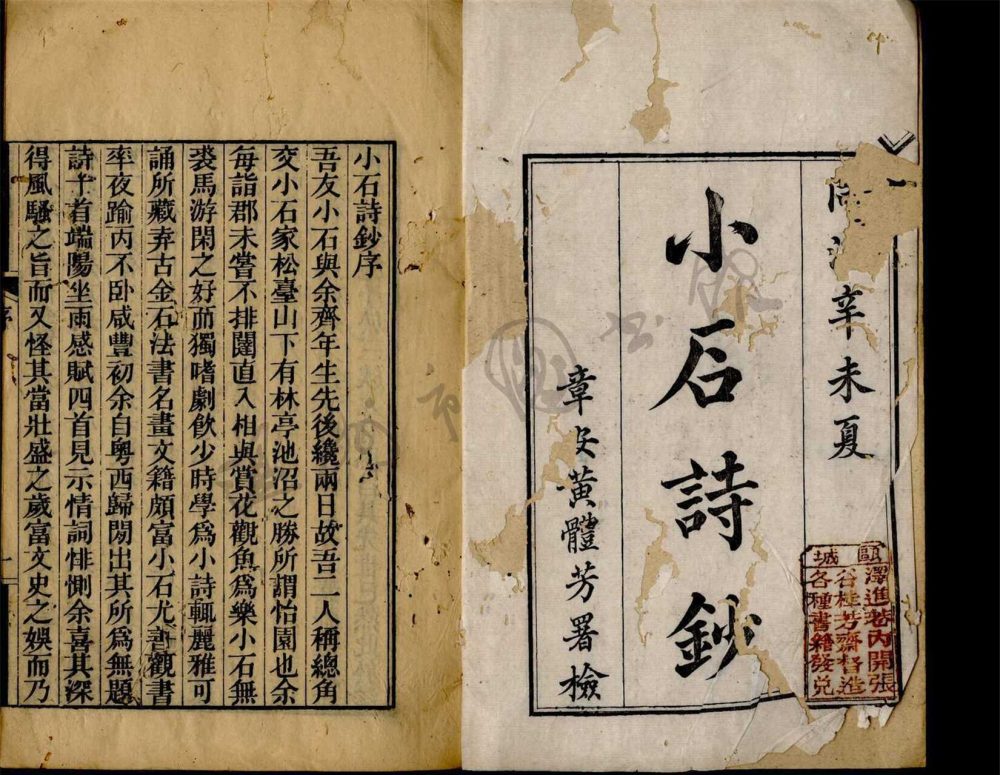 辛未夏
小石詩鈔
章安黃體芳署檢
甌城
澤進巷內開張
谷桂芳齋督造
各種書籍發兌
小石詩鈔序
吾友小石與余齊年生先後纔兩日故吾二人稱總角
交小石家松臺山下有林亭池沼之勝所謂怡園也余
每詣郡未嘗不排闥直入相與賞花觀魚爲樂小石無
裘馬游閑之好而獨嗜劇飲少時學爲小詩輒麗雅可
誦所藏弆古金石法書名畫文籍頗富小石尤善觀書
率夜踰丙不卧咸豐初余自粵西歸閒出其所爲無題
詩十首端陽坐雨感賦四首見示情詞悱惻余喜其深
得風騷之旨而又怪其當壯盛之歲富文史之娛而乃
序
一
市圖書館